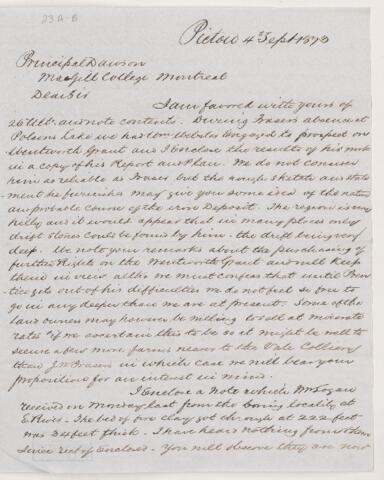 23A-B
Pictou 4th Sept 1873
Principal Dawson
MacGill College Montreal
Dear Sir
I am favored with yours of
26 Ult. and note contents. During Frasers absence at
Polsons Lake we had Wm Webster Engaged to prospect on
Wentworth Grant and I Enclose the results of his work
in a copy of his Report and Plan. We do not consider
him as reliable as Fraser but the rough sketch and state
ment he furnishes may give you some idea of the nature
and probable course of the iron Deposit. The region is very
hilly and it would appear that in many places only
drift stones could be found by him - the drift being very
deep. We note your remarks about the purchasing of
further Rights on the Wentworth Grant and will keep
them in view altho we must confess that until
gets out of his difficulties we do not feel so free to
go in any deeper than we are at present. Some of the
land owners may however be willing to sell at moderate
rates if we ascertain this to be so it might be well to
secure a few more farms nearer to the Vale Colliery
than J. W. Frasers in which case we will bear your
proposition for an interest in mind.
I Enclose a Note which Mr Logan
received on Monday last from the boring locality at
E River. The bed of fire clay got there only at 222 feet
was 34 feet thick. I have heard nothing from them
since rect of Enclosed. You will observe they are now